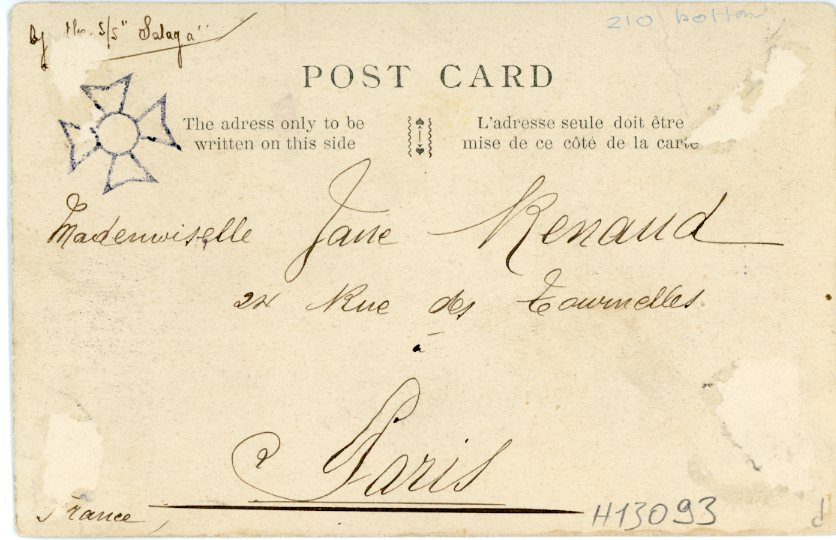 By the s/s "Salaga"
210 bottom
POST CARD
The adress only to be
written on this side
L'adresse seule doit être
mise de ce côté de la carte
Mademoiselle Jane Renaud
24 Rue des Tournelles
à
Paris
France,
H13093